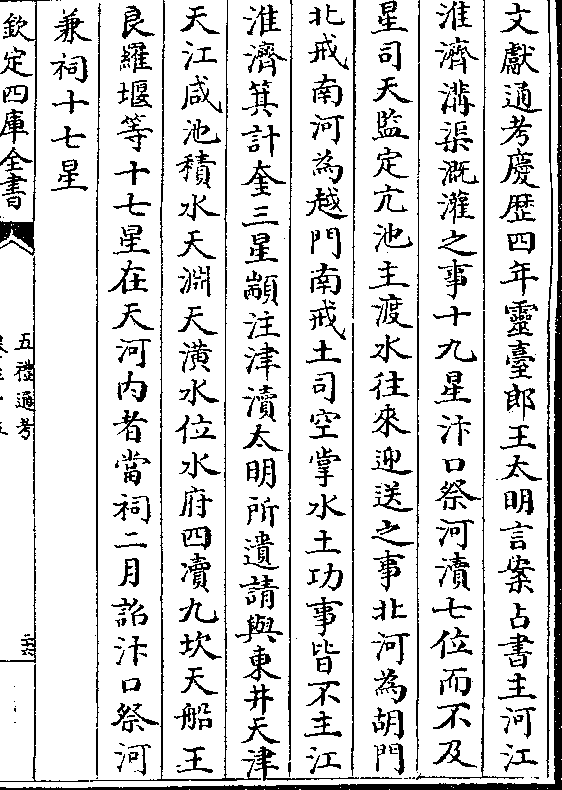 文獻通考慶歴四年靈臺郎王太明言案占書主河江
淮濟溝渠溉灌之事十九星汴口祭河瀆七位而不及
星司天監定亢池主渡水往來迎送之事北河為胡門
北戒南河為越門南戒土司空掌水土功事皆不主江
淮濟箕計奎三星顓注津瀆太明所遺請與東井天津
天江咸池積水天淵天潢水位水府四瀆九坎天船王
良羅堰等十七星在天河内者當祠二月詔汴口祭河
兼祠十七星
欽定四庫全書
五禮通考